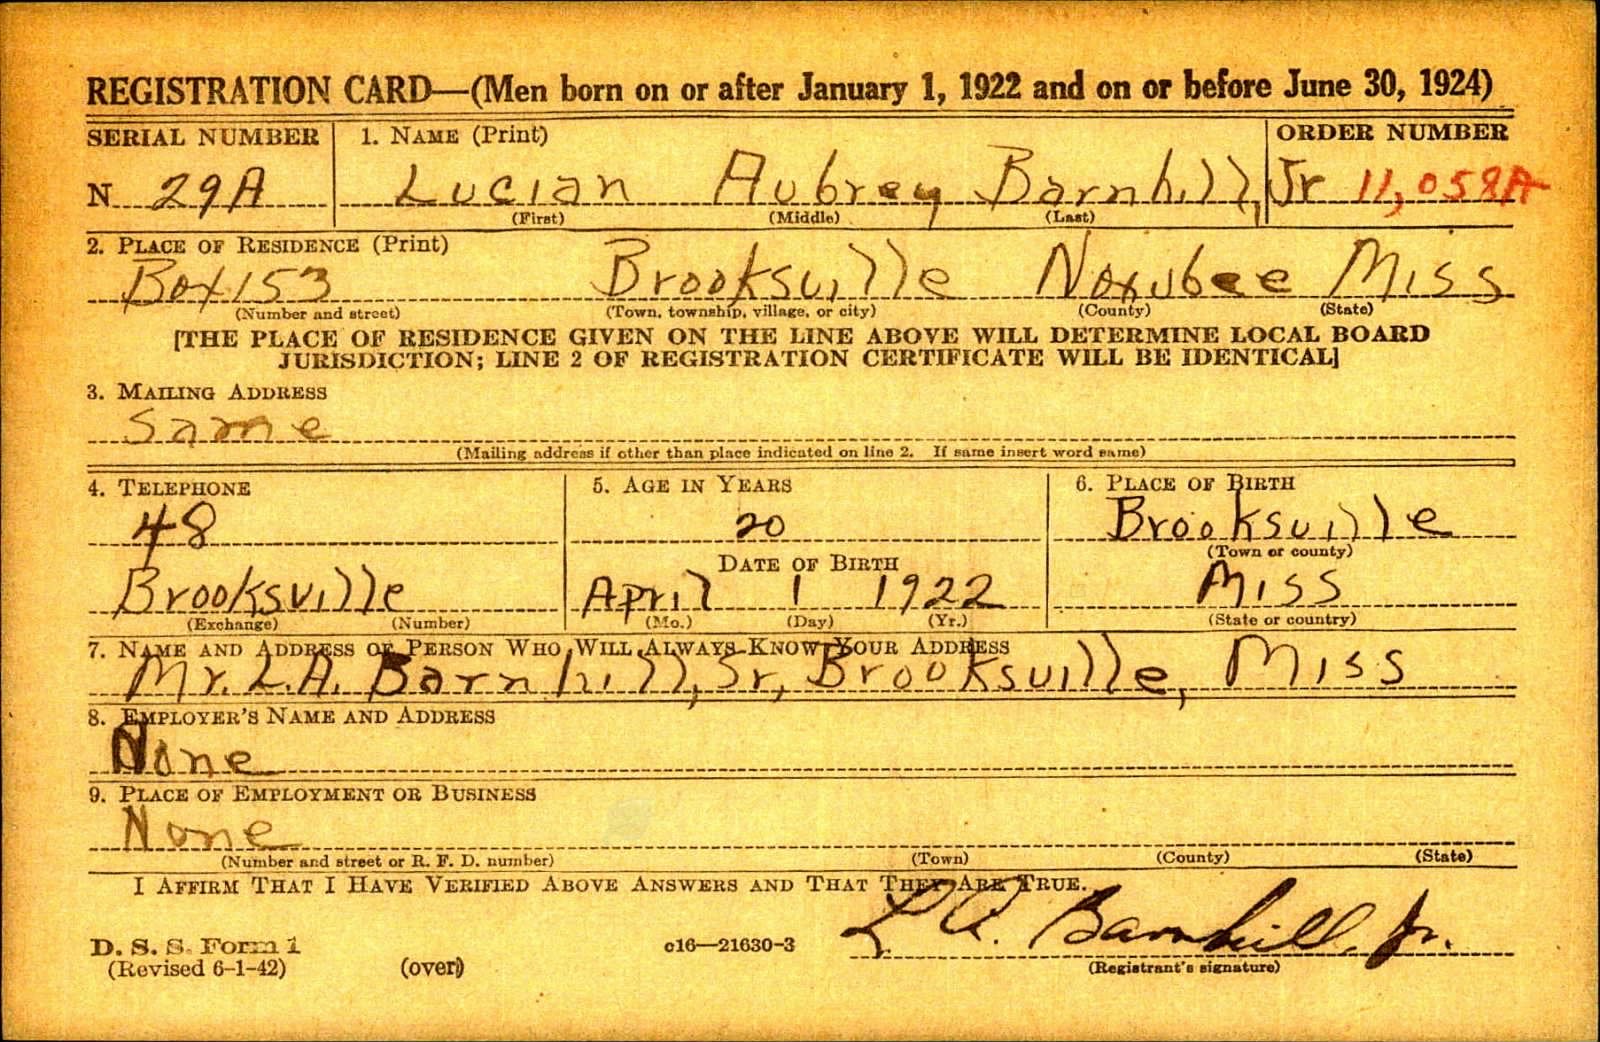 REGISTRATION CARD—(Men born on or after January 1, 1922 and on or before June 30, 1924)
SERIAL NUMBER 1. NAME (Print) ORDER NUMBER
N 29A Lucian Aubrey Barnhill, Jr 11,058A
(First) (Middle) (Last)
2. PLACE OF RESIDENCE (Print)
Box 153 Brooksville Noxubee Miss
(Number and street) (Town, township, village, or city) (County) (State)
[THE PLACE OF RESIDENCE GIVEN ON THE LINE ABOVE WILL DETERMINE LOCAL BOARD
JURISDICTION; LINE 2 OF REGISTRATION CERTIFICATE WILL BE IDENTICAL]
3. MAILING ADDRESS
Same
(Mailing address if other than place indicated on line 2. If same insert word same)
4. TELEPHONE 5. AGE IN YEARS 6. PLACE OF BIRTH
48 20 Brooksville
DATE OF BIRTH (Town or county)
Brooksville April 1 1922 Miss
(Exchange) (Number) (Mo.) (Day) (Yr.) (State or country)
7. NAME AND ADDRESS OF PERSON WHO WILL ALWAYS KNOW YOUR ADDRESS
Mr. L.A. Barnhill, Sr, Brooksville, Miss
8. EMPLOYER'S NAME AND ADDRESS
None
9. PLACE OF EMPLOYMENT OR BUSINESS
None
(Number and street or R. F. D. number) (Town) (County) (State)
I AFFIRM THAT I HAVE VERIFIED ABOVE ANSWERS AND THAT THEY ARE TRUE.
L A. Barnhill, Jr.
D. S. S. Form 1 c16—21630-3
(Revised 6-1-42) (over) (Registrant's signature)